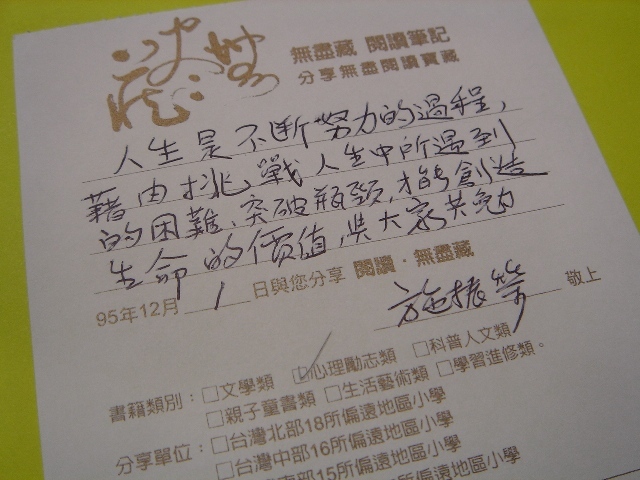 無盡藏
無盡藏 閱讀筆記
分享無盡閱讀寶藏
人生是不斷努力的過程，
藉由挑戰人生中所遇到
的困難、突破瓶頸，才能創造
生命的價值，與大家共勉
95年12月 1 日與您分享 閱讀·無盡藏
施振榮 敬上
書籍類別：□文學類 ☑心理勵志類 □科普人文類
□親子童書類 □生活藝術類 □學習進修類。
分享單位：□台灣北部18所偏遠地區小學
□台灣中部16所偏遠地區小學
南部15所偏遠地區小學
偏遠地區小學